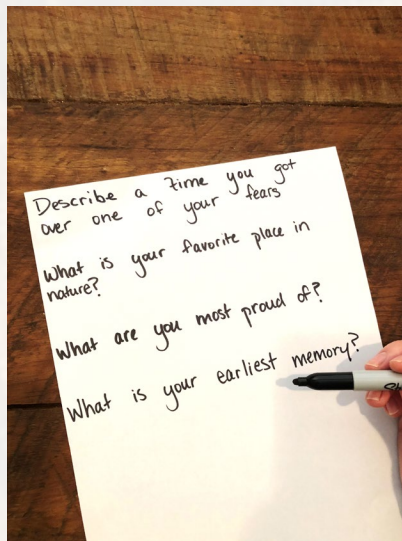 Describe a time you got
over one of your fears
What is your favorite place in
nature?
What are you most proud of?
What is your earliest memory?